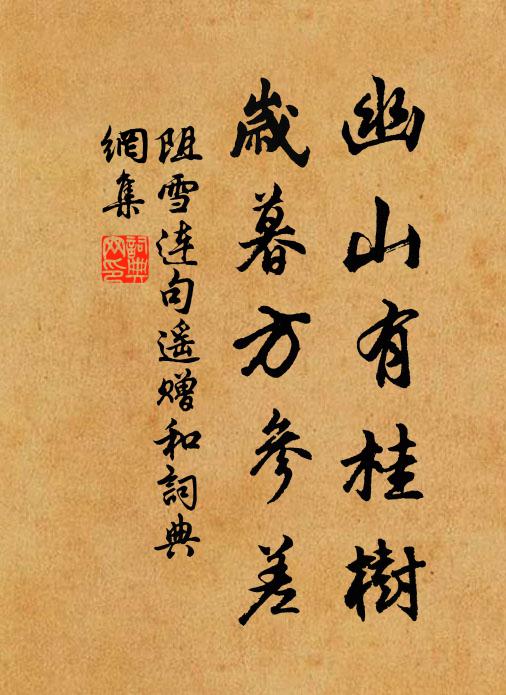 幽山有桂樹
歲暮方參差
阻雪連句遥贈和詞典
網集
詞典
网印